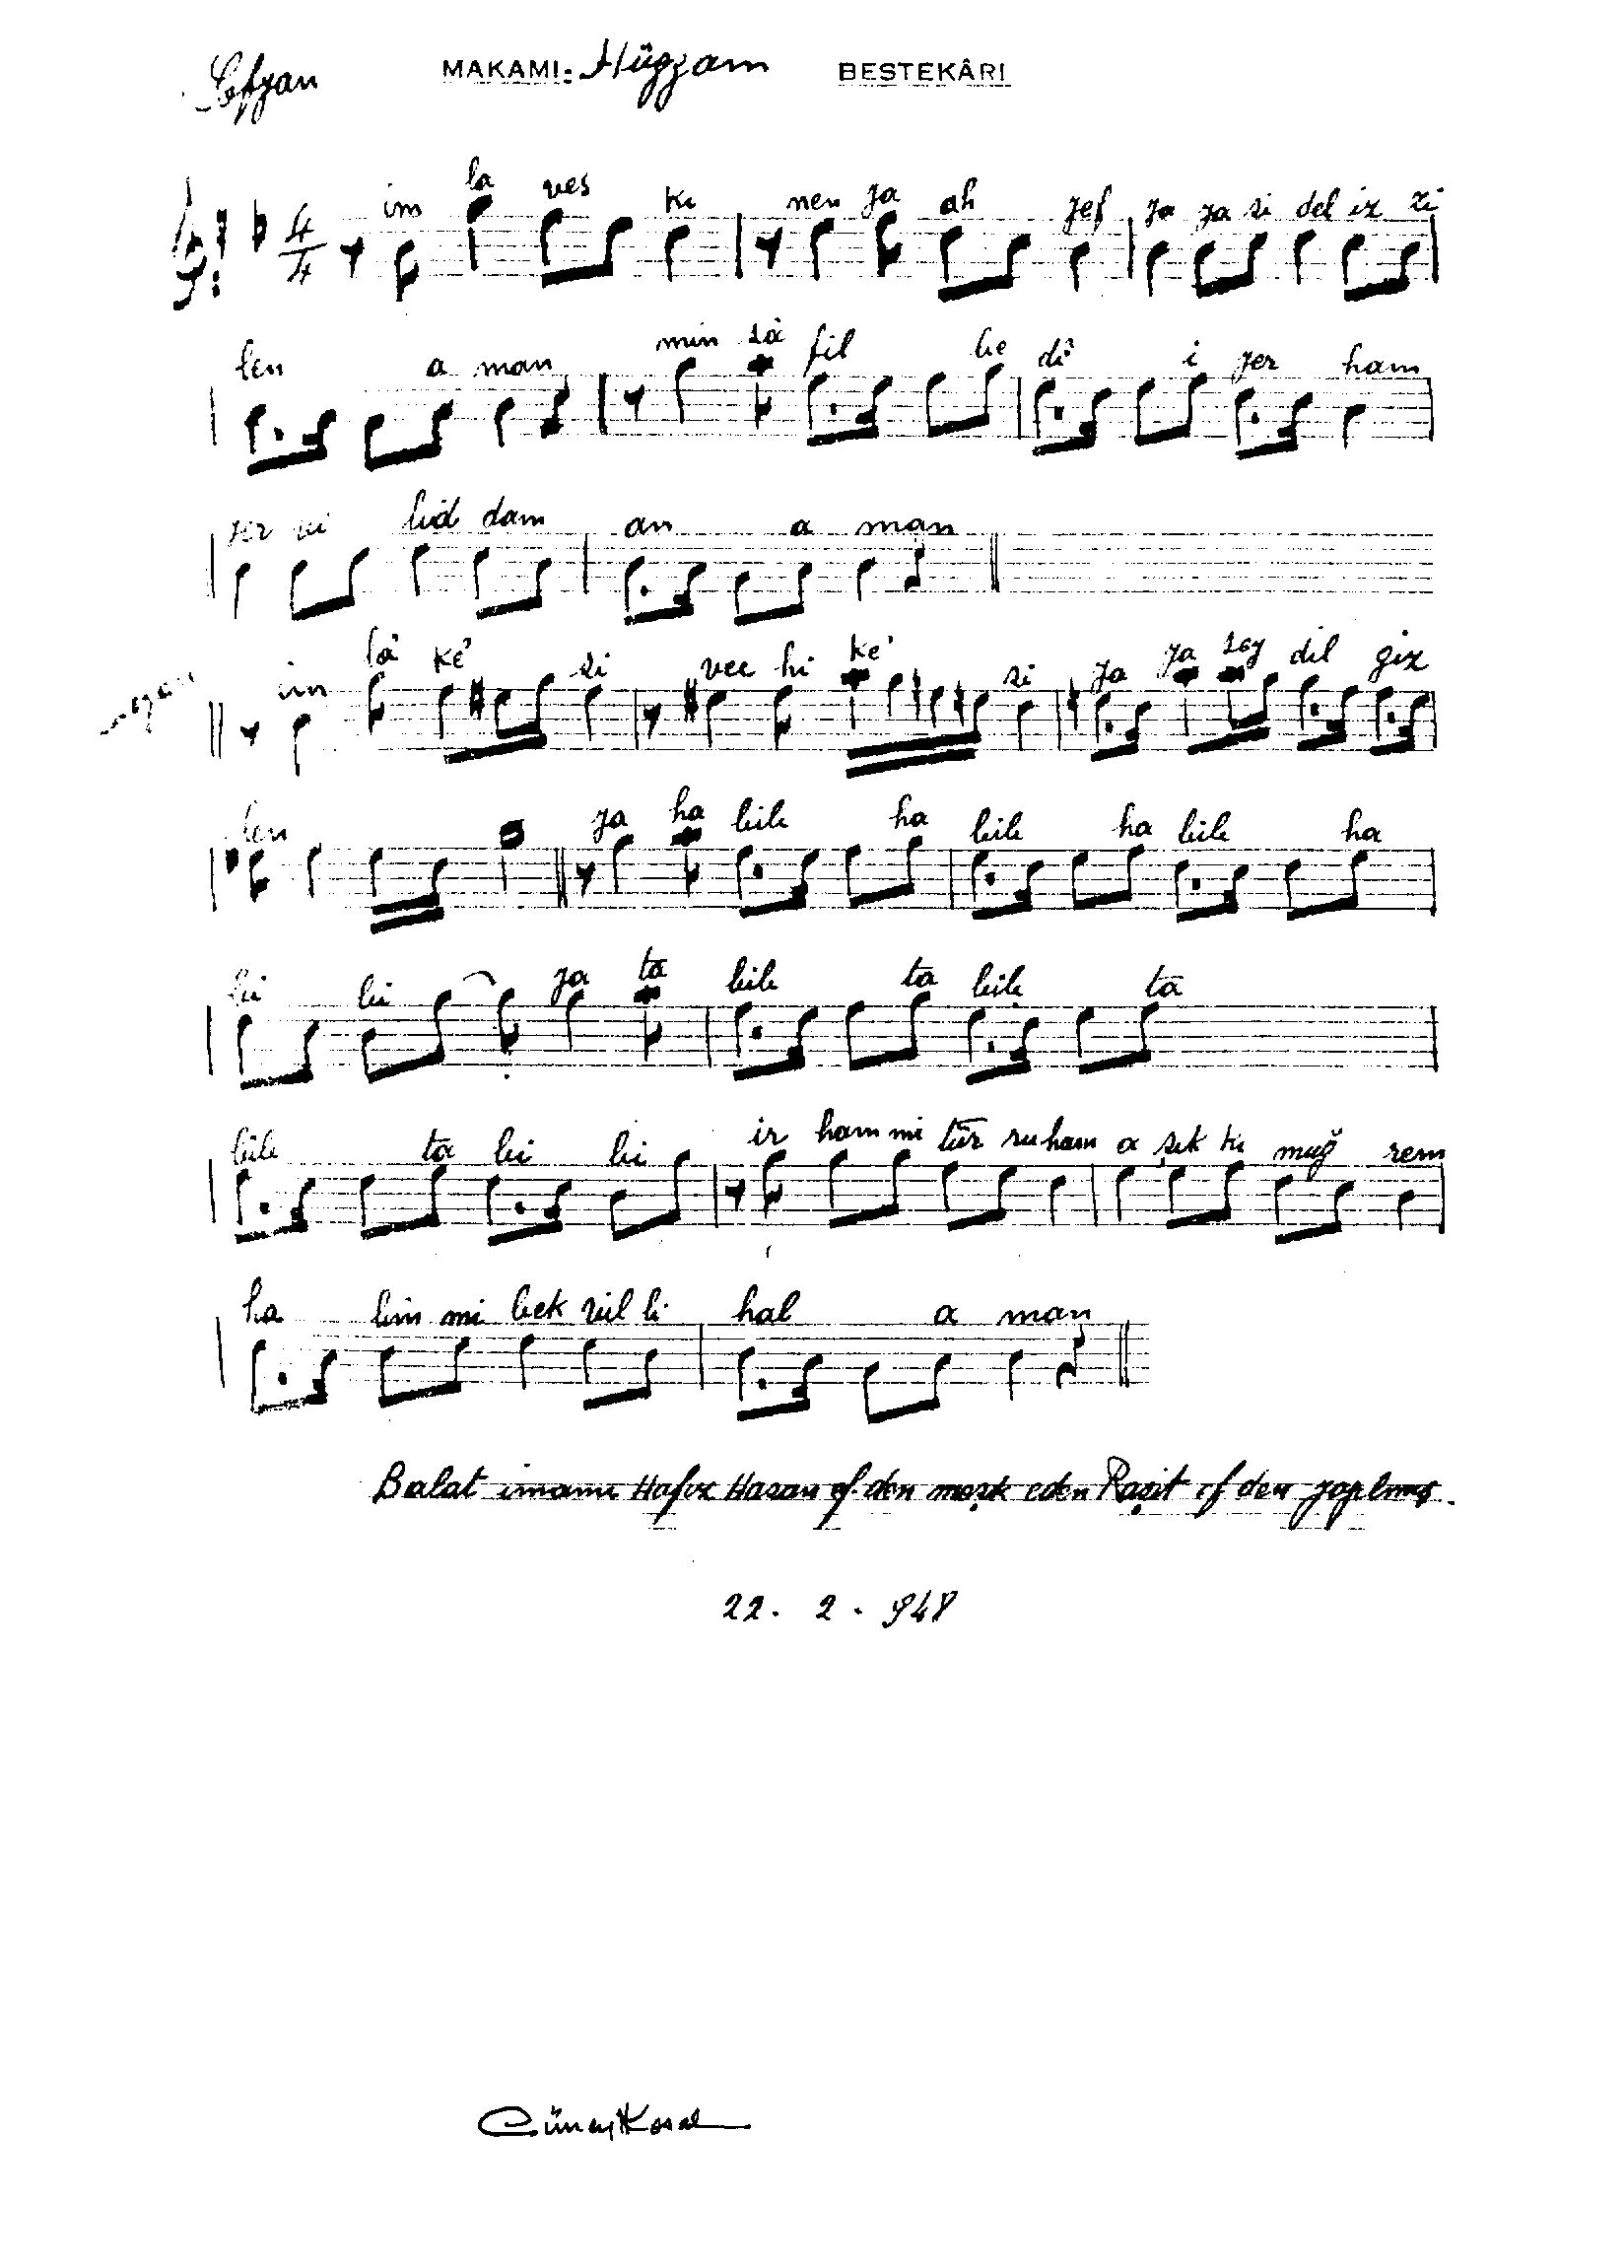 Sofyan MAKAMI: Hüzzam BESTEKÂRI
4/4
im la ves ki nen ya ah yef ya ya si del iz zi
len a man min sâ fil be dî i yer ham
yer bi lid dam an a man
im lâ ke' si vec hi ke' si ya ya sey dil giz
len ya ha bile ha bile ha bile ha
bi bi ya ta bile ta bile ta
bile ta bi bi ir ham mi tür ru ham a şık ki muğ rem
ha lim mi bek vil li hal a man
Balat imamı Hafız Hasan ef. den meşk eden Raşit ef den yapılmış.
22. 2. 948
Cüneyt Kosal